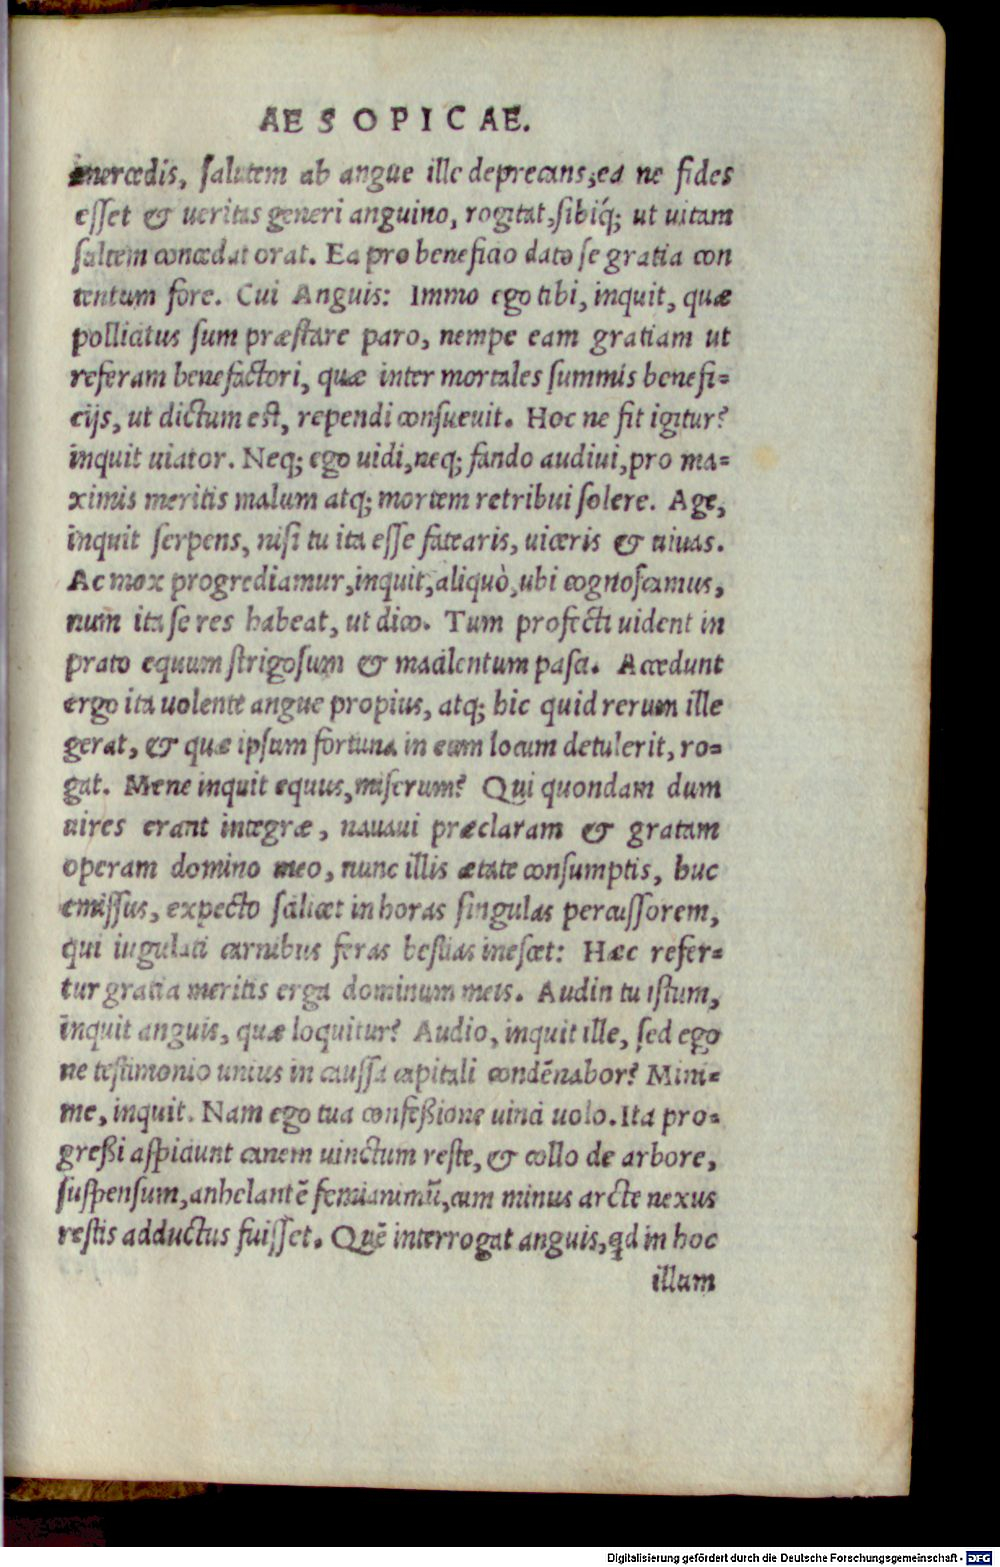 AESOPICAE.
mercedis, salutem ab angue ille deprecans, ea ne fides
esset & ueritas generi anguino, rogitat, sibiq́; ut uitam
saltem concedat orat. Ea pro beneficio dato se gratia con
tentum fore. Cui Anguis: Immo ego tibi, inquit, quæ
pollicitus sum præstare paro, nempe eam gratiam ut
referam benefactori, quæ inter mortales summis benefi=
cijs, ut dictum est, rependi consueuit. Hoc ne fit igitur?
inquit uiator. Neq; ego uidi, neq; fando audiui, pro ma=
ximis meritis malum atq; mortem retribui solere. Age,
inquit serpens, nisi tu ita esse fatearis, uiceris & uiuas.
Ac mox progrediamur, inquit, aliquò, ubi cognoscamus,
num ita se res habeat, ut dico. Tum profecti uident in
prato equum strigosum & macilentum pasci. Accedunt
ergo ita uolente angue propius, atq; hic quid rerum ille
gerat, & quæ ipsum fortuna in eum locum detulerit, ro=
gat. Mene inquit equus, miserum? Qui quondam dum
uires erant integræ, nauaui præclaram & gratam
operam domino meo, nunc illis ætate consumptis, huc
emissus, expecto scilicet in horas singulas percussorem,
qui iugulati carnibus feras bestias inescet: Hæc refer=
tur gratia meritis erga dominum meis. Audin tu istum,
inquit anguis, quæ loquitur? Audio, inquit ille, sed ego
ne testimonio unius in caussa capitali condēnabor? Mini=
me, inquit. Nam ego tua confeßione uinci uolo. Ita pro=
greßi aspiciunt canem uinctum reste, & collo de arbore,
suspensum, anhelantē semianimū, cum minus arcte nexus
restis adductus fuisset. Quē interrogat anguis, qd in hoc
illum
Digitalisierung gefördert durch die Deutsche Forschungsgemeinschaft - DFG